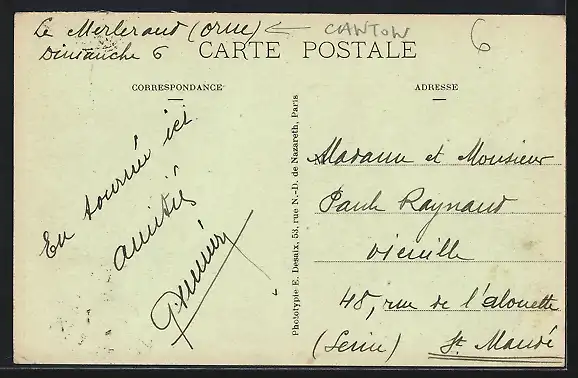 Le Merlerault (Orne) ← CANTON
Dimanche 6
6
CARTE POSTALE
CORRESPONDANCE
ADRESSE
En tournée ici
amitiés
Phototypie E. Desaix, 53, rue N.-D. de Nazareth, Paris
Madame et Monsieur
Paul Raynaud
48, rue de l'alouette
(Seine) St. Mandé